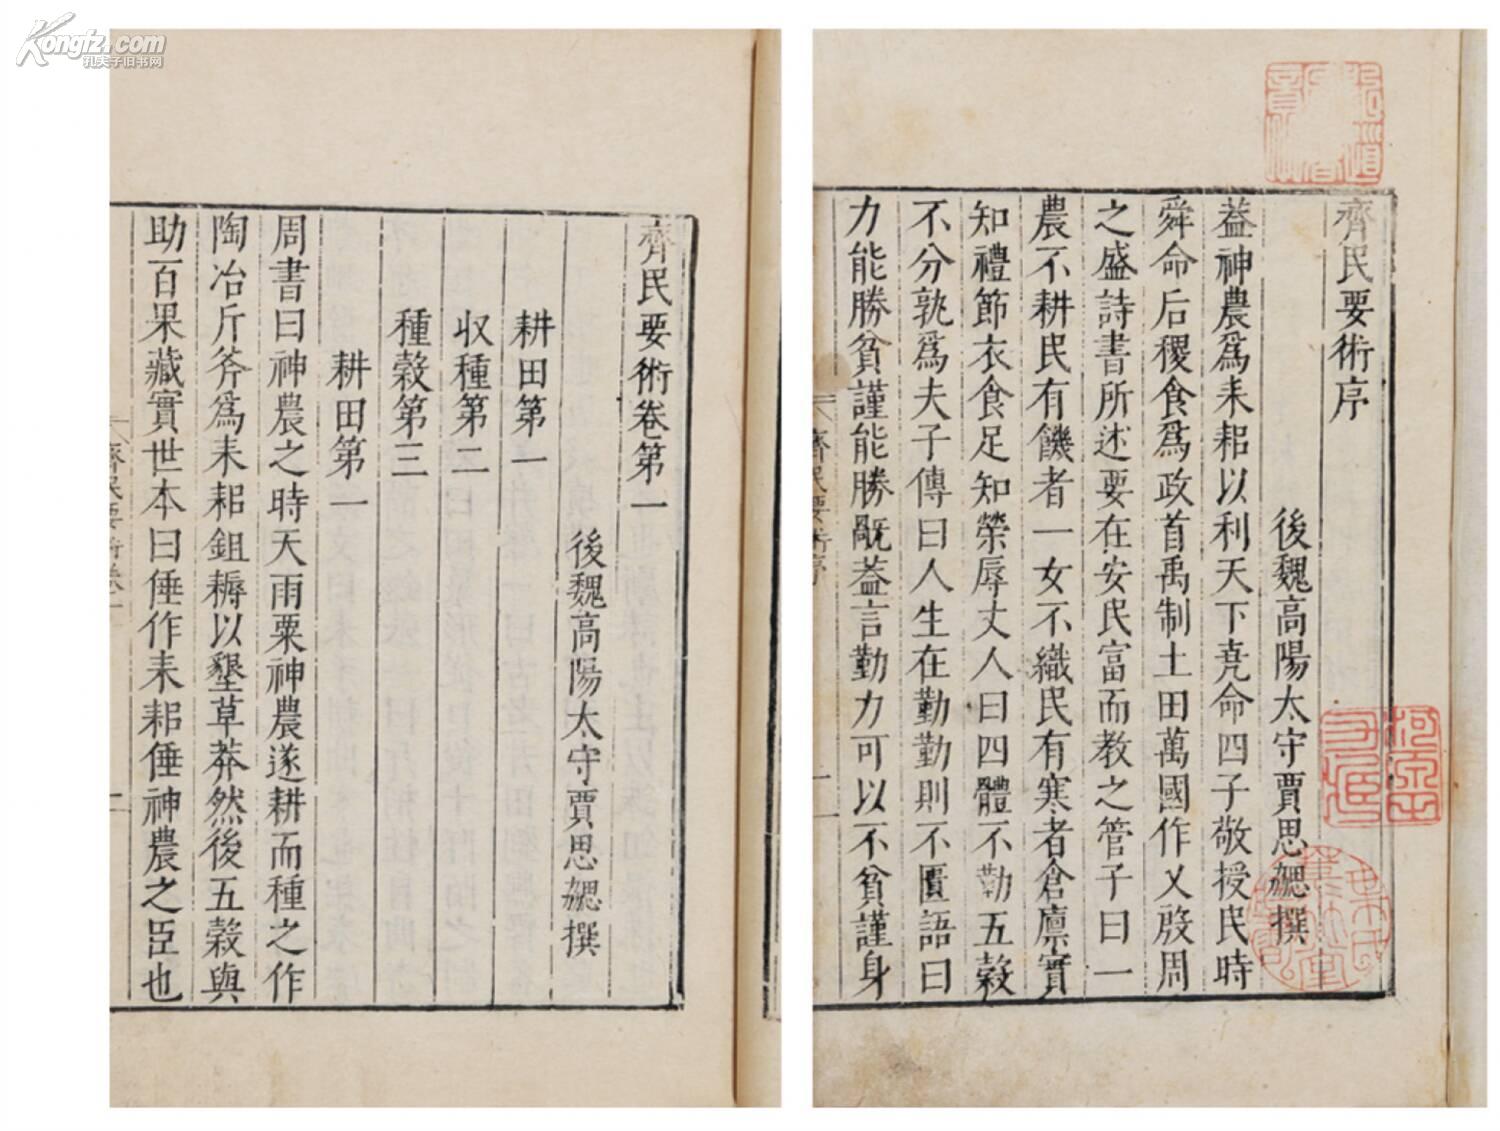 Kongfz.com
孔夫子旧书网
齊民要術序
後魏高陽太守賈思勰撰
葢神農爲耒耜以利天下堯命四子敬授民時
舜命后稷食爲政首禹制土田萬國作乂殷周
之盛詩書所述要在安民富而教之管子曰一
農不耕民有饑者一女不織民有寒者倉廪實
知禮節衣食足知榮辱丈人曰四體不勤五穀
不分孰爲夫子傳曰人生在勤勤則不匱語曰
力能勝貧謹能勝旤葢言勤力可以不貧謹身
齊民要術序
一
齊民要術卷第一
後魏高陽太守賈思勰撰
耕田第一
収種第二
種穀第三
耕田第一
周書曰神農之時天雨粟神農遂耕而種之作
陶冶斤斧爲耒耜鉏耨以墾草莽然後五穀與
助百果藏實世本曰倕作耒耜倕神農之臣也
齊民要術卷一